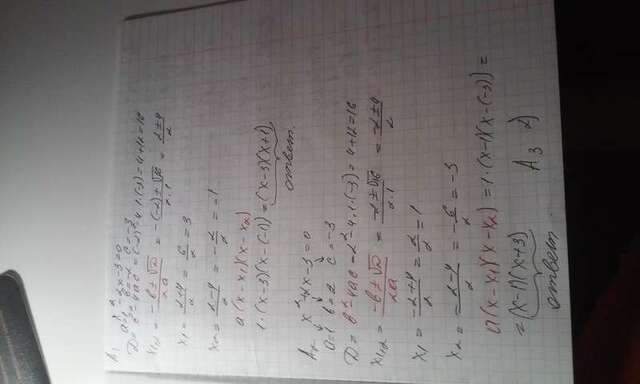 A1 x² - 2x - 3 = 0
a=1 b=-2 c=-3
D = b² - 4ac = (-2)² - 4·1·(-3) = 4+12 = 16
x1,2 = (-b ± √D)/2a = (-(-2) ± √16)/2·1 = (2±4)/2
x1 = (2+4)/2 = 6/2 = 3
x2 = (2-4)/2 = -2/2 = -1
a(x-x1)(x-x2)
1·(x-3)(x-(-1)) = (x-3)(x+1)
ответ.
A2 x² + 2x - 3 = 0
a=1 b=2 c=-3
D = b² - 4ac = 2² - 4·1·(-3) = 4+12 = 16
x1,2 = (-b ± √D)/2a = (-2 ± √16)/2·1 = (-2±4)/2
x1 = (-2+4)/2 = 2/2 = 1
x2 = (-2-4)/2 = -6/2 = -3
a(x-x1)(x-x2) = 1·(x-1)(x-(-3)) =
= (x-1)(x+3) A3 2)
ответ